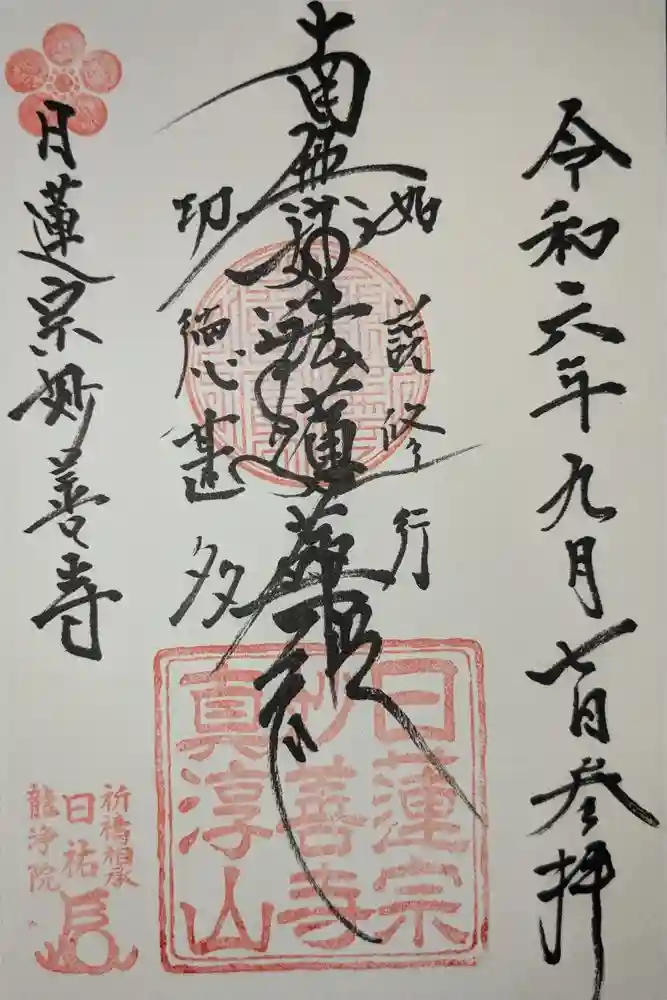 令和六年九月七日参拝
如説修行
南無妙法蓮華経
功徳甚多
日蓮宗妙善寺
日蓮宗
妙善寺
真淳山
祈祷相承
日祐
龍浄院